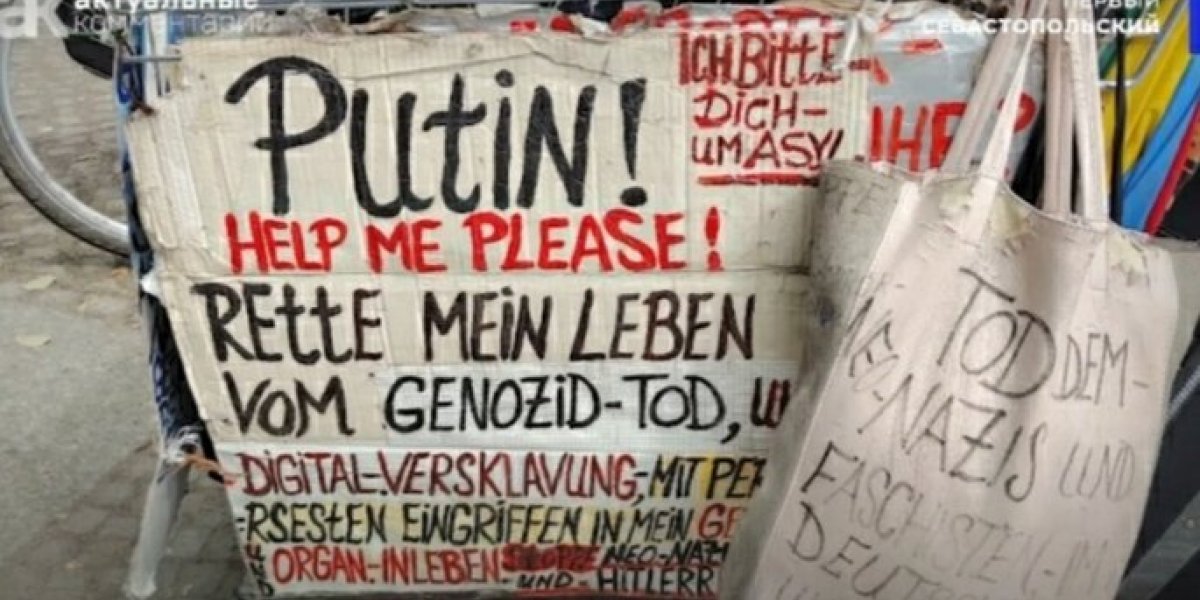 актуальные
комментарии
ПЕРВЫЙ
СЕВАСТОПОЛЬСКИЙ
PUTIN!
HELP ME PLEASE!
RETTE MEIN LEBEN
VOM GENOZID-TOD, U
DIGITAL-VERSKLAVUNG, MIT PER
RSESTEN EINGRIFFEN IN MEIN GE
ORGAN-INLEBEN NEO-NAZI
-UND- HITLERR
ICH BITTE
DICH-
UM ASY
IHER
TOD DEM-
NEO-NAZIS UND
FASCHISTEN-IM
DEUT